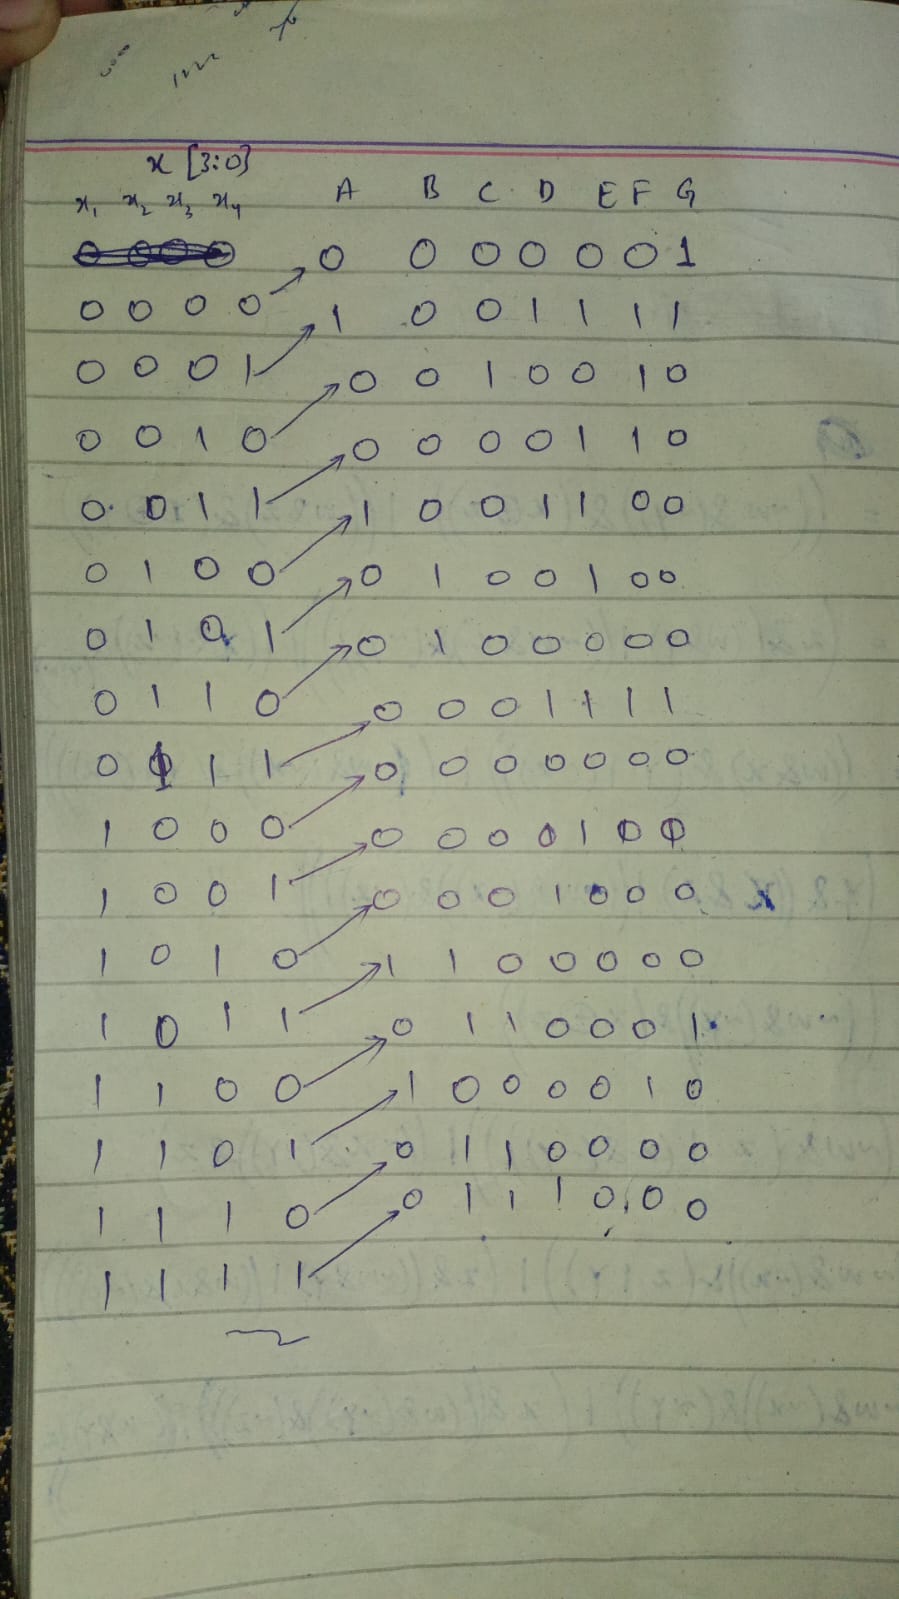 x [3:0]
x₁ x₂ x₃ x₄ A B C D E F G
0 0 0 0 0 0 0 0 0 0 1
0 0 0 0
1 0 0 1 1 1 1
0 0 0 1
0 0 1 0 0 1 0
0 0 1 0
0 0 0 0 1 1 0
0 0 1 1
1 0 0 1 1 0 0
0 1 0 0
0 1 0 0 1 0 0
0 1 0 1
0 1 0 0 0 0 0
0 1 1 0
0 0 0 1 1 1 1
0 1 1 1
0 0 0 0 0 0 0
1 0 0 0
0 0 0 0 1 0 0
1 0 0 1
0 0 0 1 0 0 0 x
1 0 1 0
1 1 0 0 0 0 0
1 0 1 1
0 1 1 0 0 0 1
1 1 0 0
1 0 0 0 0 1 0
1 1 0 1
0 1 1 0 0 0 0
1 1 1 0
0 1 1 1 0 0 0
1 1 1 1